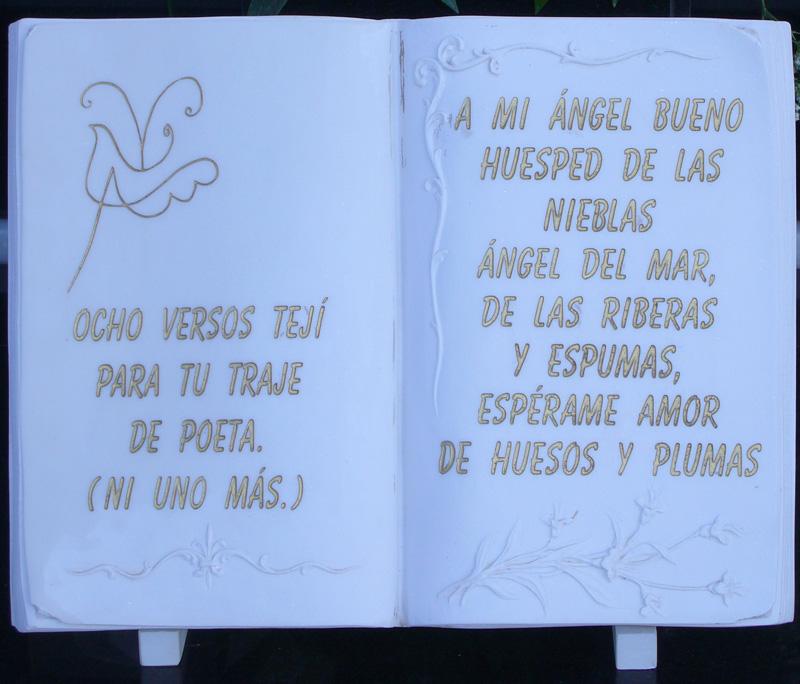 OCHO VERSOS TEJÍ
PARA TU TRAJE
DE POETA.
(NI UNO MÁS.)
A MI ÁNGEL BUENO
HUESPED DE LAS
NIEBLAS
ÁNGEL DEL MAR,
DE LAS RIBERAS
Y ESPUMAS,
ESPÉRAME AMOR
DE HUESOS Y PLUMAS